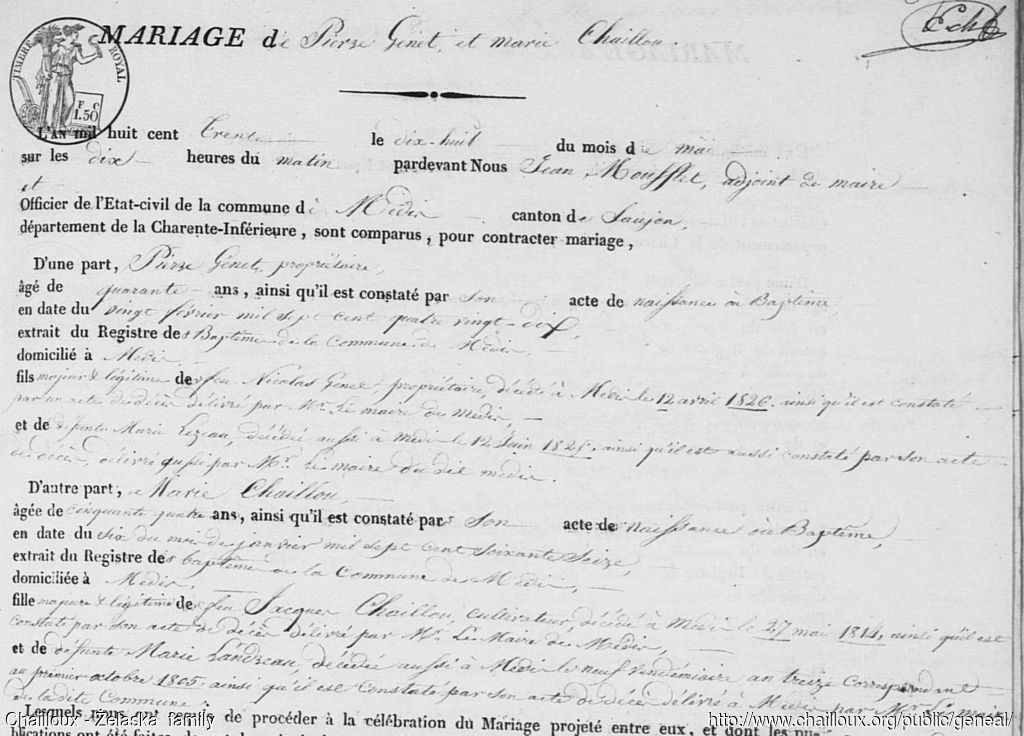 TIMBRE ROYAL
F C
1.50
MARIAGE de Pierre Genet, et marie Chaillou.
L'AN mil huit cent Trente le dix-huit du mois de mai
sur les dix heures du matin pardevant Nous Jean Moufflet, adjoint de maire
et
Officier de l'Etat-civil de la commune de Médis canton de Saujon,
département de la Charente-Inférieure, sont comparus, pour contracter mariage,
D'une part, Pierre Genet, propriétaire,
âgé de quarante ans, ainsi qu'il est constaté par son acte de naissance ou Baptême,
en date du vingt février mil sept cent quatre vingt-dix,
extrait du Registre des Baptême de la Commune de Médis,
domicilié à Médis,
fils majeur & légitime de feu Nicolas Genet, propriétaire, décédé à Médis le 12 avril 1826. ainsi qu'il est constaté
par un acte de décès délivré par Mr. Le maire de médis,
et de défunte Marie Lezeau, décédée aussi à Médis le 12 Juin 1825, ainsi qu'il est aussi constaté par son acte
de décès, délivré aussi par Mr. Le maire du dit médis.
D'autre part, Marie Chaillou,
âgée de cinquante quatre ans, ainsi qu'il est constaté par Son acte de naissance ou Baptême,
en date du six du moi de janvier mil sept cent soixante seize,
extrait du Registre des baptême de la Commune de Médis,
domiciliée à Médis,
fille majeure & légitime de feu Jacques Chaillou, cultivateur, décédé à Médis le 27 mai 1814, ainsi qu'il est
constaté par son acte de décès délivré par Mr. Le Maire de Médis,
et de défunte Marie Landreau, décédée aussi à Médis le neuf vendémiaire an treize correspondant
au premier octobre 1805, ainsi qu'il est Constaté par son acte de décès délivré à Médis par Mr Le maire
de la dite Commune.
Lesquels nous de procéder à la célébration du Mariage projeté entre eux, et dont les pu-
blications ont été faites
Chailloux - Zelaska family
http://www.chailloux.org/public/geneal/